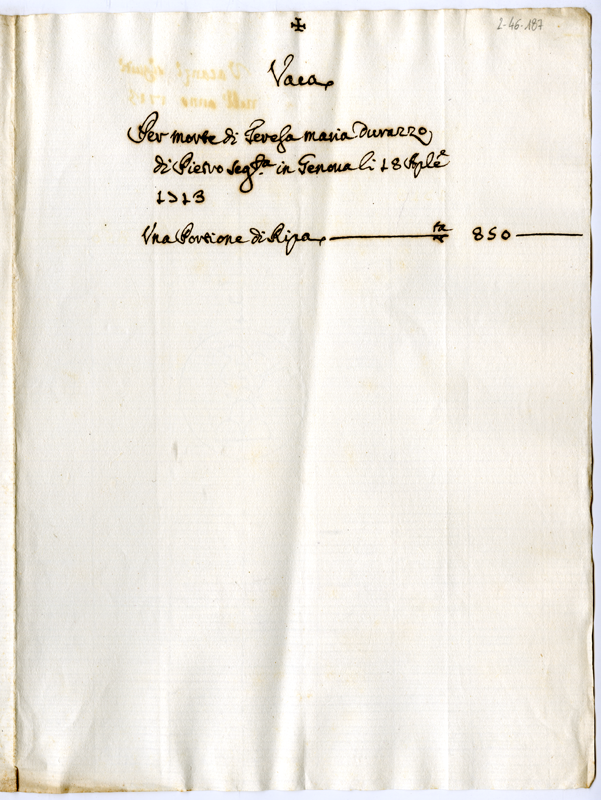 ✠
2-46-187
Vaca
Per morte di Teresa maria Durazzo
di Pietro seg.ta in Genova li 18 Aple
1713
Una Portione di Ripa 850